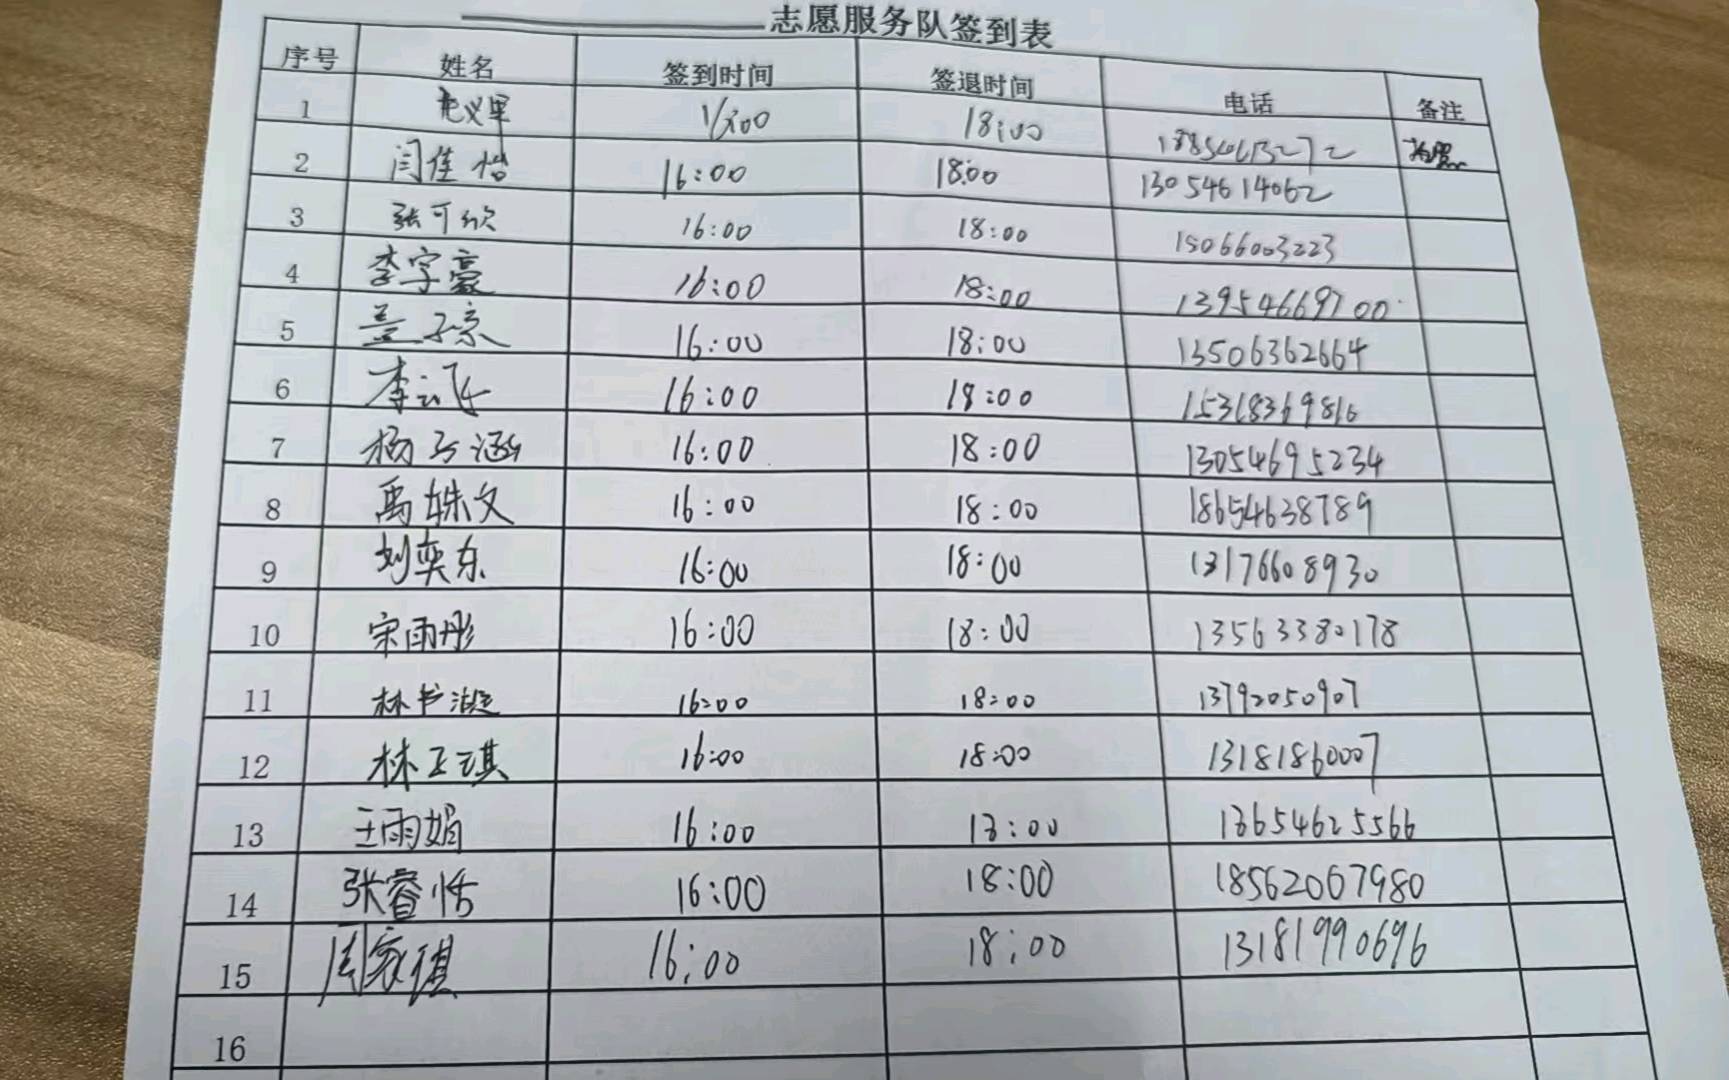 志愿服务队签到表
序号 姓名 签到时间 签退时间 电话 备注
1 18:00
2 闫佳怡 16:00 18:00 13054614062
3 张可欣 16:00 18:00 15066003223
4 李宇豪 16:00 18:00 13954669700
5 16:00 18:00 13506362664
6 李云飞 16:00 18:00 15318369816
7 杨子涵 16:00 18:00 13054695234
8 禹姝文 16:00 18:00 18654638789
9 刘奕东 16:00 18:00 13176608930
10 宋雨彤 16:00 18:00 13563380178
11 林书 16:00 18:00 13792050907
12 林子琪 16:00 18:00 13181860007
13 王雨娟 16:00 18:00 13654625566
14 张睿恬 16:00 18:00 18562067980
15 周家祺 16:00 18:00 13181990696
16